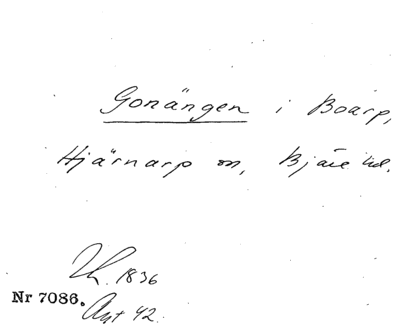 Gonängen i Boarp,
Hjärnarp sn, Bjäre hd.
Th. 1836
Nr 7086.
Ant 42.